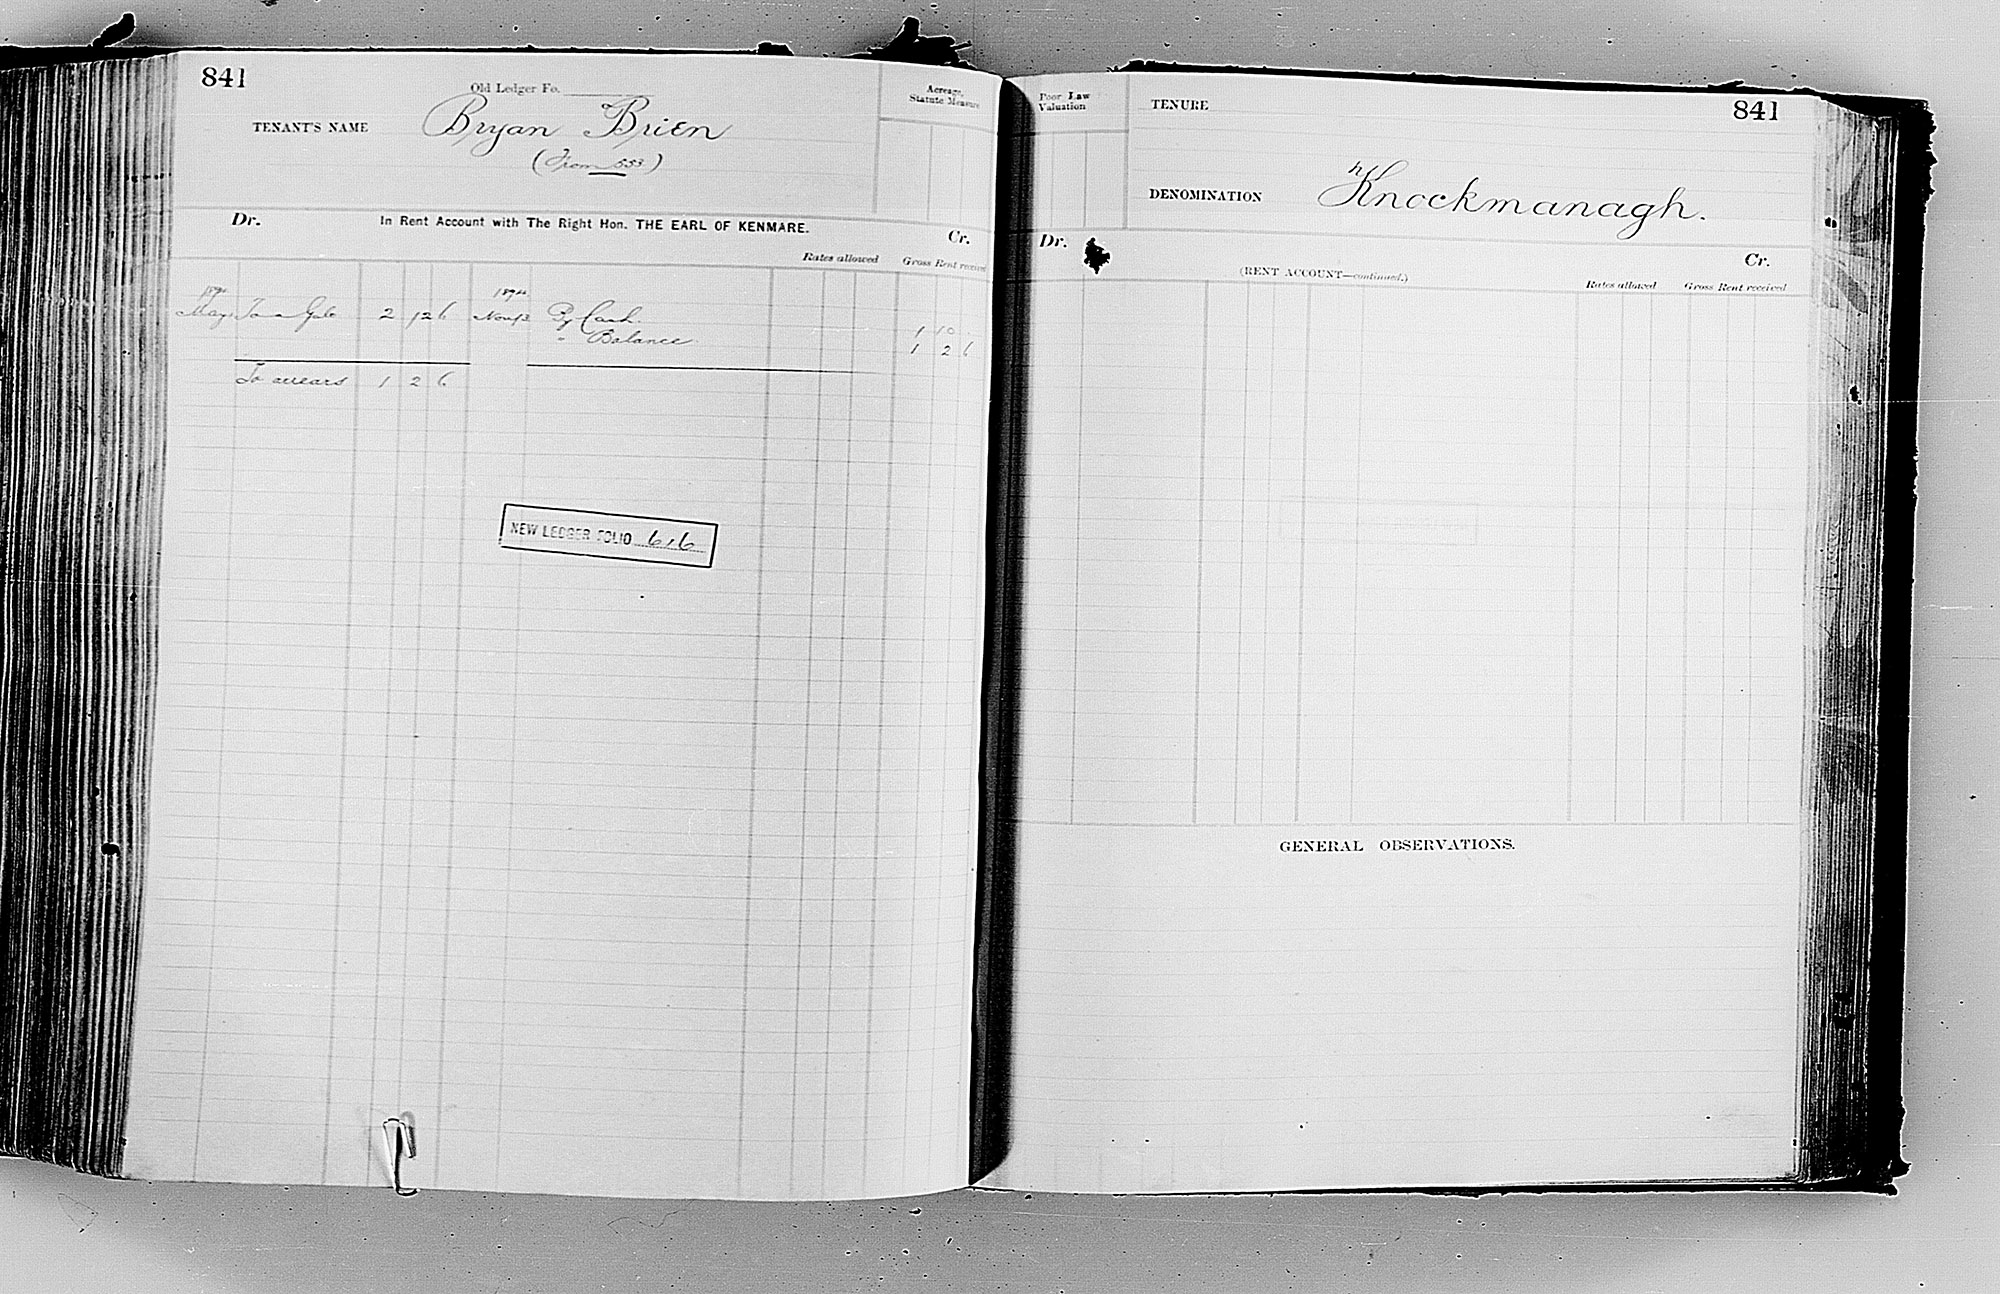 841
Old Ledger Fo.
Acreage, Statute Measure
TENANT'S NAME Bryan Brien
(From 553)
Dr. In Rent Account with The Right Hon. THE EARL OF KENMARE. Cr.
Rates allowed Gross Rent received
May To a Gale 2 12 6 By Cash 1 10
" Balance 1 2 6
To arrears 1 2 6
NEW LEDGER FOLIO 616
Poor Law Valuation
TENURE
841
DENOMINATION Knockmanagh.
Dr. Cr.
(RENT ACCOUNT—continued.)
Rates allowed Gross Rent received
GENERAL OBSERVATIONS.